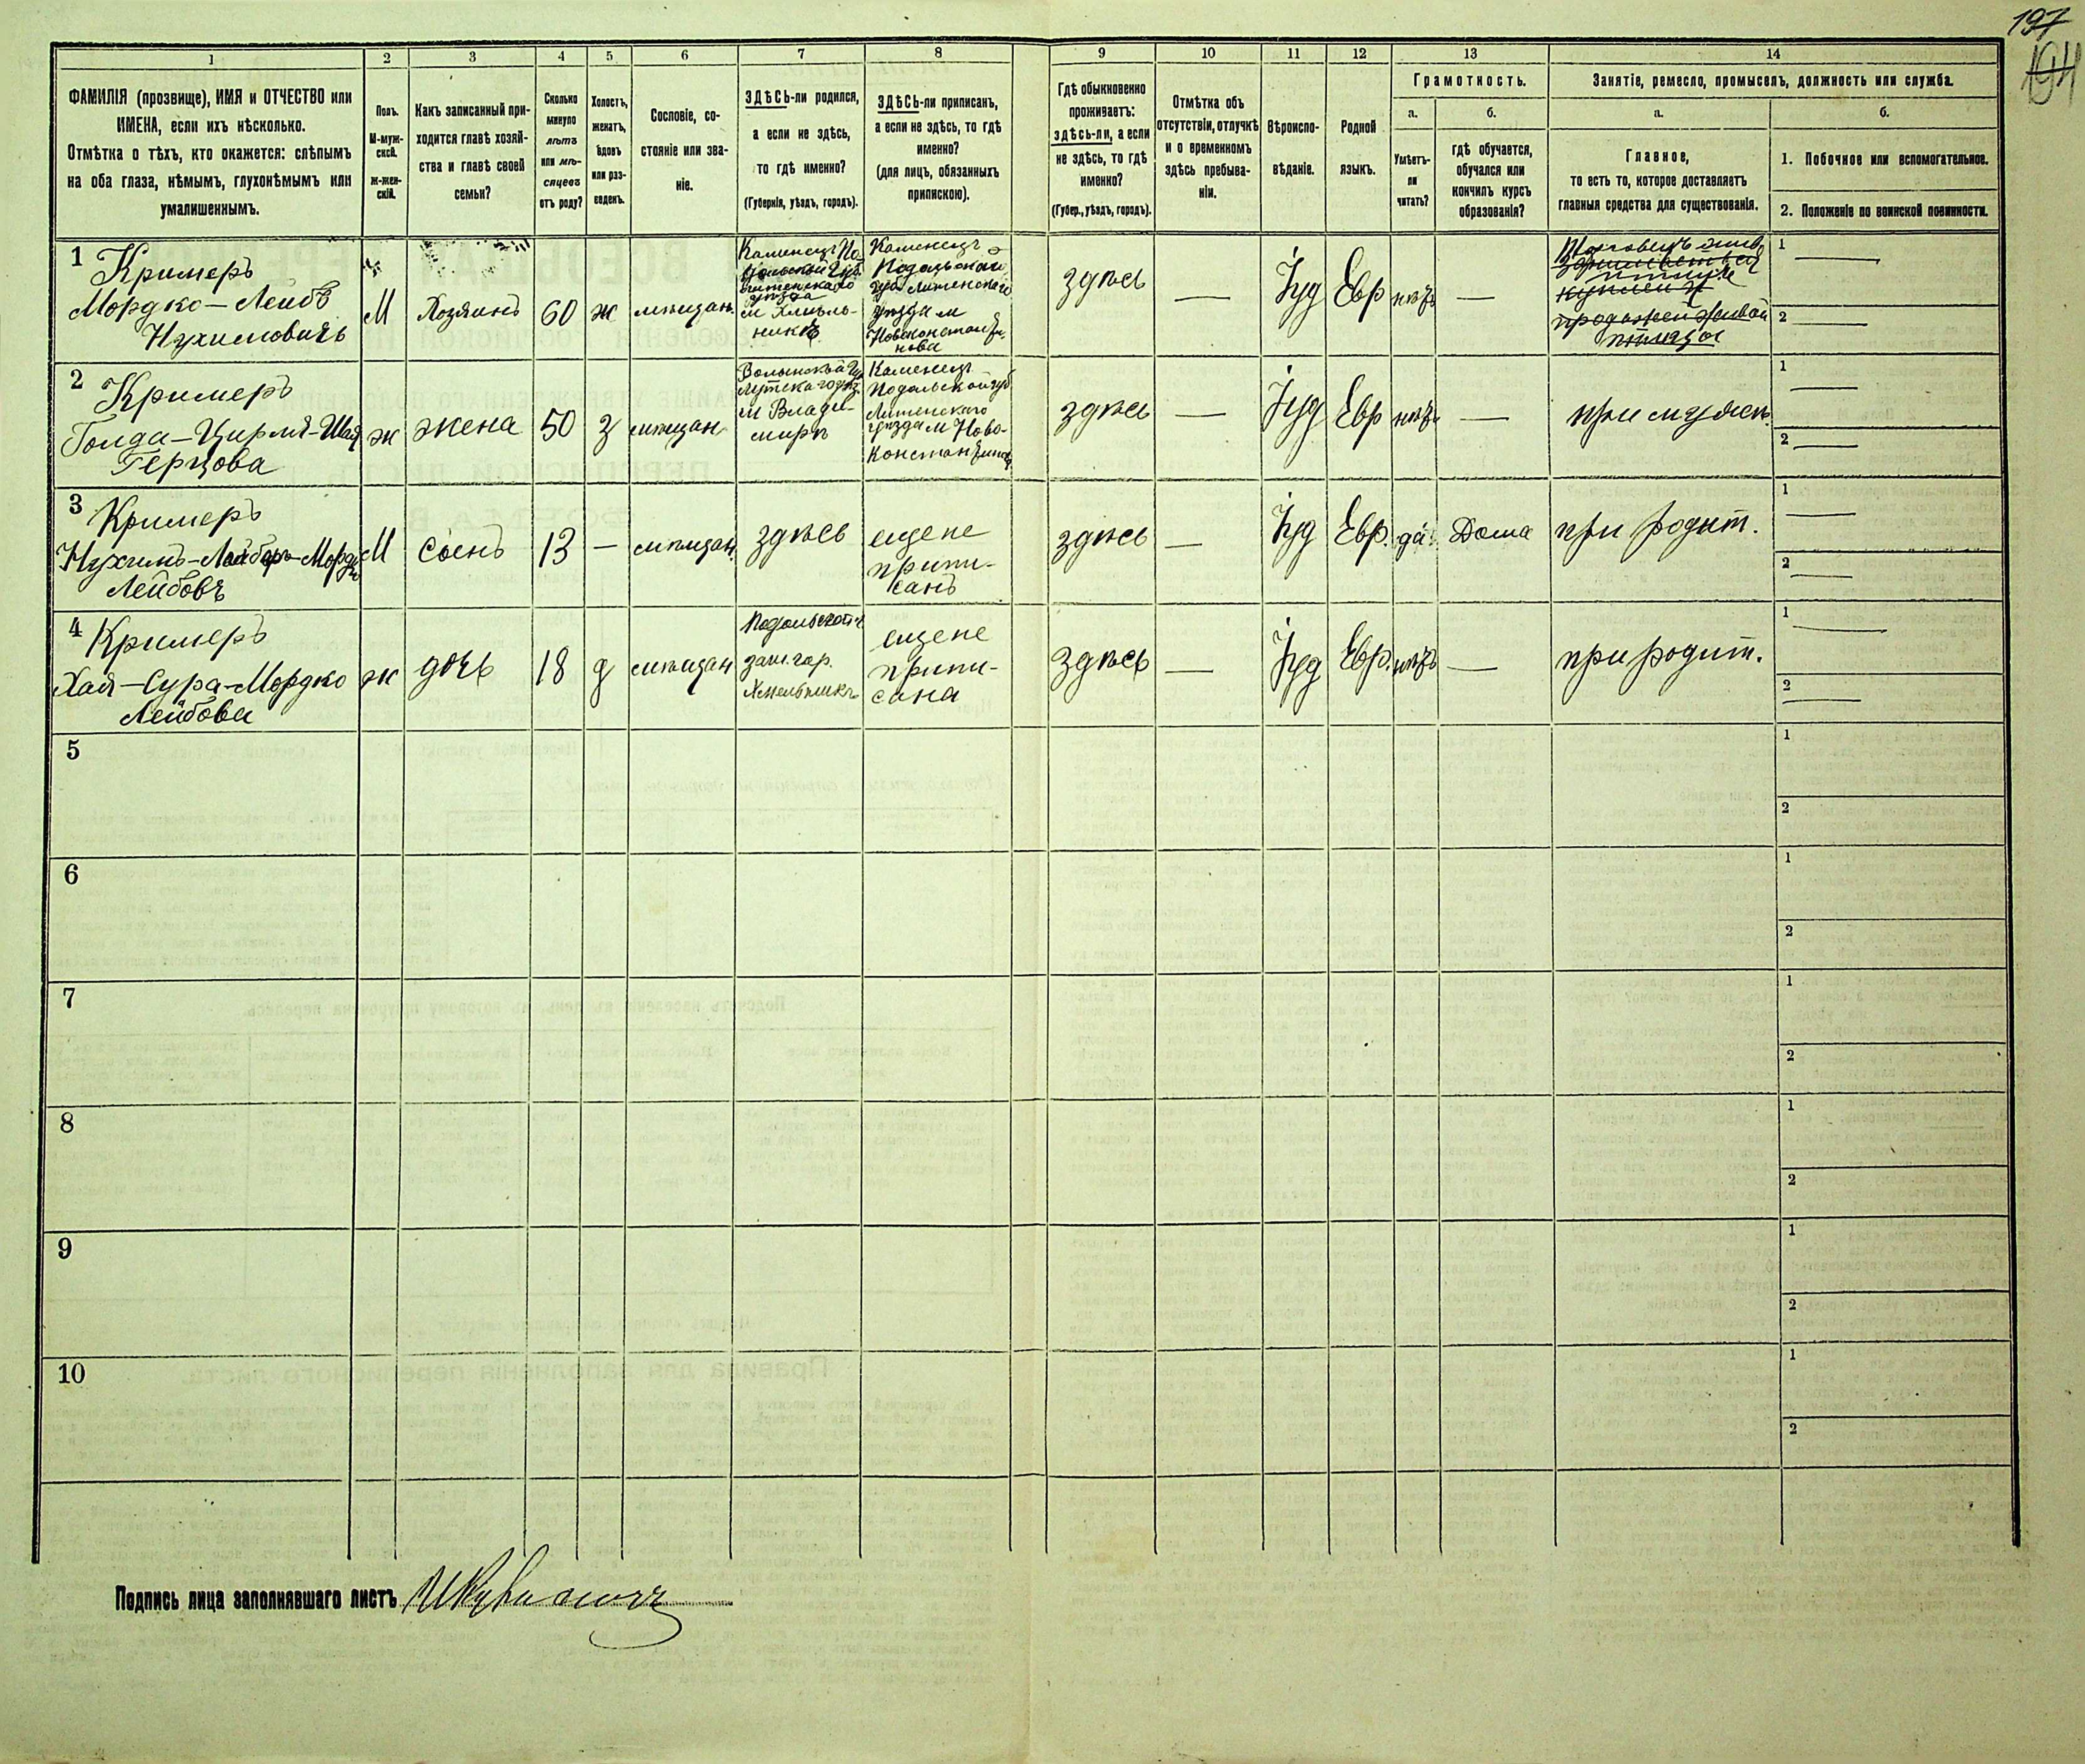 197
194
1
2
3
4
5
6
7
8
9
10
11
12
13
14
ФАМИЛІЯ (прозвище), ИМЯ и ОТЧЕСТВО или
ИМЕНА, если ихъ нѣсколько.
Отмѣтка о тѣхъ, кто окажется: слѣпымъ
на оба глаза, нѣмымъ, глухонѣмымъ или
умалишеннымъ.
Полъ.
М-муж-
ской.
ж-жен-
скій.
Какъ записанный при-
ходится главѣ хозяй-
ства и главѣ своей
семьи?
Сколько
минуло
лѣтъ
или мѣ-
сяцевъ
отъ роду?
Холостъ,
женатъ,
вдовъ
или раз-
веденъ.
Сословіе, со-
стояніе или зва-
ніе.
ЗДѢСЬ-ли родился,
а если не здѣсь,
то гдѣ именно?
(Губернія, уѣздъ, городъ).
ЗДѢСЬ-ли приписанъ,
а если не здѣсь, то гдѣ
именно?
(для лицъ, обязанныхъ
припискою).
Гдѣ обыкновенно
проживаетъ:
здѣсь-ли, а если
не здѣсь, то гдѣ
именно?
(Губер., уѣздъ, городъ).
Отмѣтка объ
отсутствіи, отлучкѣ
и о временномъ
здѣсь пребыва-
ніи.
Вѣроиспо-
вѣданіе.
Родной
языкъ.
Грамотность.
а.
б.
Умѣетъ-
ли
читать?
гдѣ обучается,
обучался или
кончилъ курсъ
образованія?
Занятіе, ремесло, промыселъ, должность или служба.
а.
б.
Главное,
то есть то, которое доставляетъ
главныя средства для существованія.
1. Побочное или вспомогательное.
2. Положеніе по воинской повинности.
1
Кримеръ
Мордко-Лейбъ
Нухимовичъ
М
Хозяинъ
60
ж
мѣщан.
Каменецъ По-
дольской Губ.
Литинскаго
уѣзда
м Хмѣль-
никѣ
Каменецъ
Подольской
губ Литинскаго
уѣзда м
Новоконстанти-
нова
здѣсь
—
Іуд
Евр
нѣтъ
—
Торговецъ жив
птицей
продажей живой
птицы
1 —
2 —
2
Кримеръ
Голда-Цирля-Шая
Герцова
ж
жена
50
з
мѣщан
Волынской Гу
Луцкаго уѣз.
м Влади-
мирѣ
Каменецъ
Подольской губ
Литинскаго
уѣзда м Ново-
Константинов
здѣсь
—
Іуд
Евр
нѣтъ
—
при мужѣ.
1 —
2 —
3
Кримеръ
Нухимъ-Лейберъ-Мордк
Лейбовъ
М
сынъ
13
—
мѣщан.
здѣсь
еще не
припи-
санъ
здѣсь
—
Іуд
Евр.
да
Дома
при родит.
1 —
2 —
4
Кримеръ
Хая-Сура-Мордко
Лейбова
ж
дочь
18
д
мѣщан
Подольской г.
заш. гор.
Хмельникъ
еще не
припи-
сана
здѣсь
—
Іуд
Евр.
нѣтъ
—
при родит.
1 —
2 —
5
1
2
6
1
2
7
1
2
8
1
2
9
1
2
10
1
2
Подпись лица заполнявшаго листъ